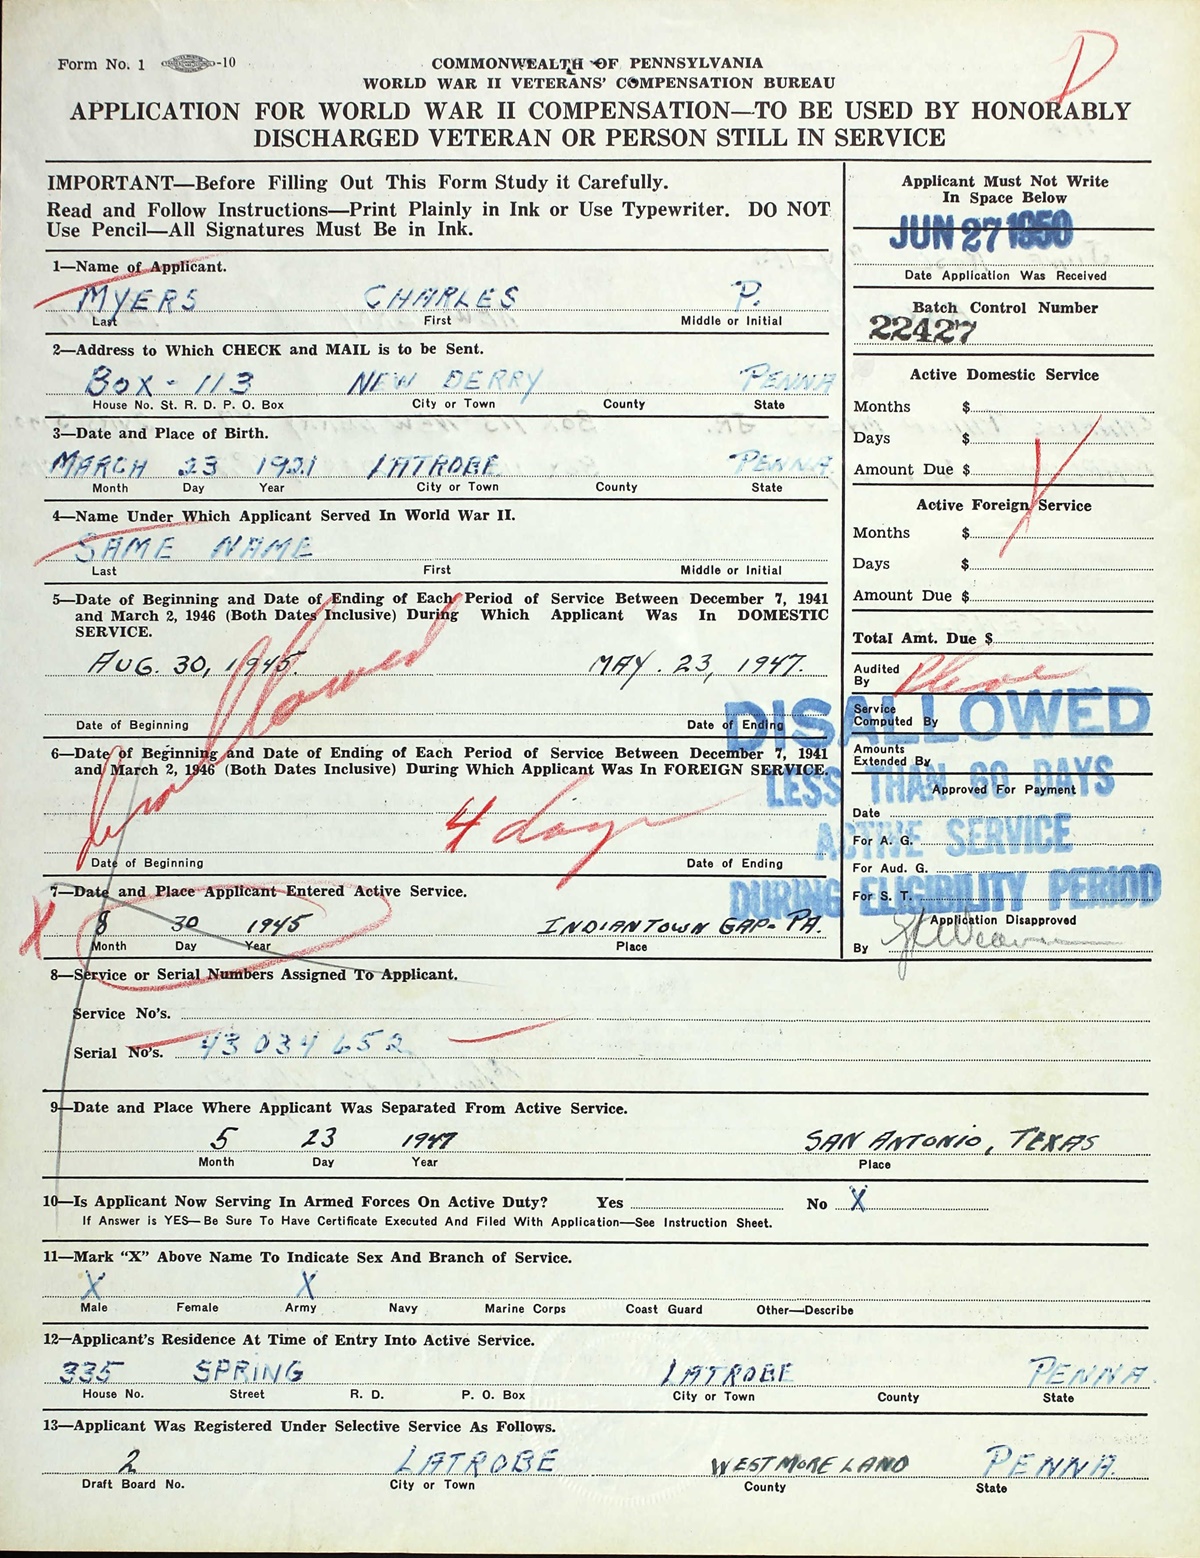 Form No. 1 -10
COMMONWEALTH OF PENNSYLVANIA
WORLD WAR II VETERANS' COMPENSATION BUREAU
APPLICATION FOR WORLD WAR II COMPENSATION—TO BE USED BY HONORABLY
DISCHARGED VETERAN OR PERSON STILL IN SERVICE
D
IMPORTANT—Before Filling Out This Form Study it Carefully.
Read and Follow Instructions—Print Plainly in Ink or Use Typewriter. DO NOT
Use Pencil—All Signatures Must Be in Ink.
1—Name of Applicant.
MYERS CHARLES P.
Last First Middle or Initial
2—Address to Which CHECK and MAIL is to be Sent.
BOX-113 NEW DERRY PENNA
House No. St. R. D. P. O. Box City or Town County State
3—Date and Place of Birth.
MARCH 23 1921 LATROBE PENNA.
Month Day Year City or Town County State
4—Name Under Which Applicant Served In World War II.
SAME NAME
Last First Middle or Initial
5—Date of Beginning and Date of Ending of Each Period of Service Between December 7, 1941
and March 2, 1946 (Both Dates Inclusive) During Which Applicant Was In DOMESTIC
SERVICE.
AUG. 30, 1945. MAY. 23, 1947.
Date of Beginning Date of Ending
6—Date of Beginning and Date of Ending of Each Period of Service Between December 7, 1941
and March 2, 1946 (Both Dates Inclusive) During Which Applicant Was In FOREIGN SERVICE.
4 days
Date of Beginning Date of Ending
7—Date and Place Applicant Entered Active Service.
X 8 30 1945 INDIANTOWN GAP- PA.
Month Day Year Place
Applicant Must Not Write
In Space Below
JUN 27 1950
Date Application Was Received
Batch Control Number
22427
Active Domestic Service
Months $
Days $
Amount Due $
Active Foreign Service
Months $
Days $
Amount Due $
Total Amt. Due $
Audited
By
Service
Computed By
Amounts
Extended By
Approved For Payment
Date
For A. G.
For Aud. G.
For S. T.
Application Disapproved
By
DISALLOWED
LESS THAN 60 DAYS
ACTIVE SERVICE
DURING ELIGIBILITY PERIOD
8—Service or Serial Numbers Assigned To Applicant.
Service No's.
Serial No's. 43 034 652
9—Date and Place Where Applicant Was Separated From Active Service.
5 23 1947 SAN ANTONIO, TEXAS
Month Day Year Place
10—Is Applicant Now Serving In Armed Forces On Active Duty? Yes No X
If Answer is YES—Be Sure To Have Certificate Executed And Filed With Application—See Instruction Sheet.
11—Mark "X" Above Name To Indicate Sex And Branch of Service.
X X
Male Female Army Navy Marine Corps Coast Guard Other—Describe
12—Applicant's Residence At Time of Entry Into Active Service.
335 SPRING LATROBE PENNA.
House No. Street R. D. P. O. Box City or Town County State
13—Applicant Was Registered Under Selective Service As Follows.
2 LATROBE WESTMORELAND PENNA.
Draft Board No. City or Town County State